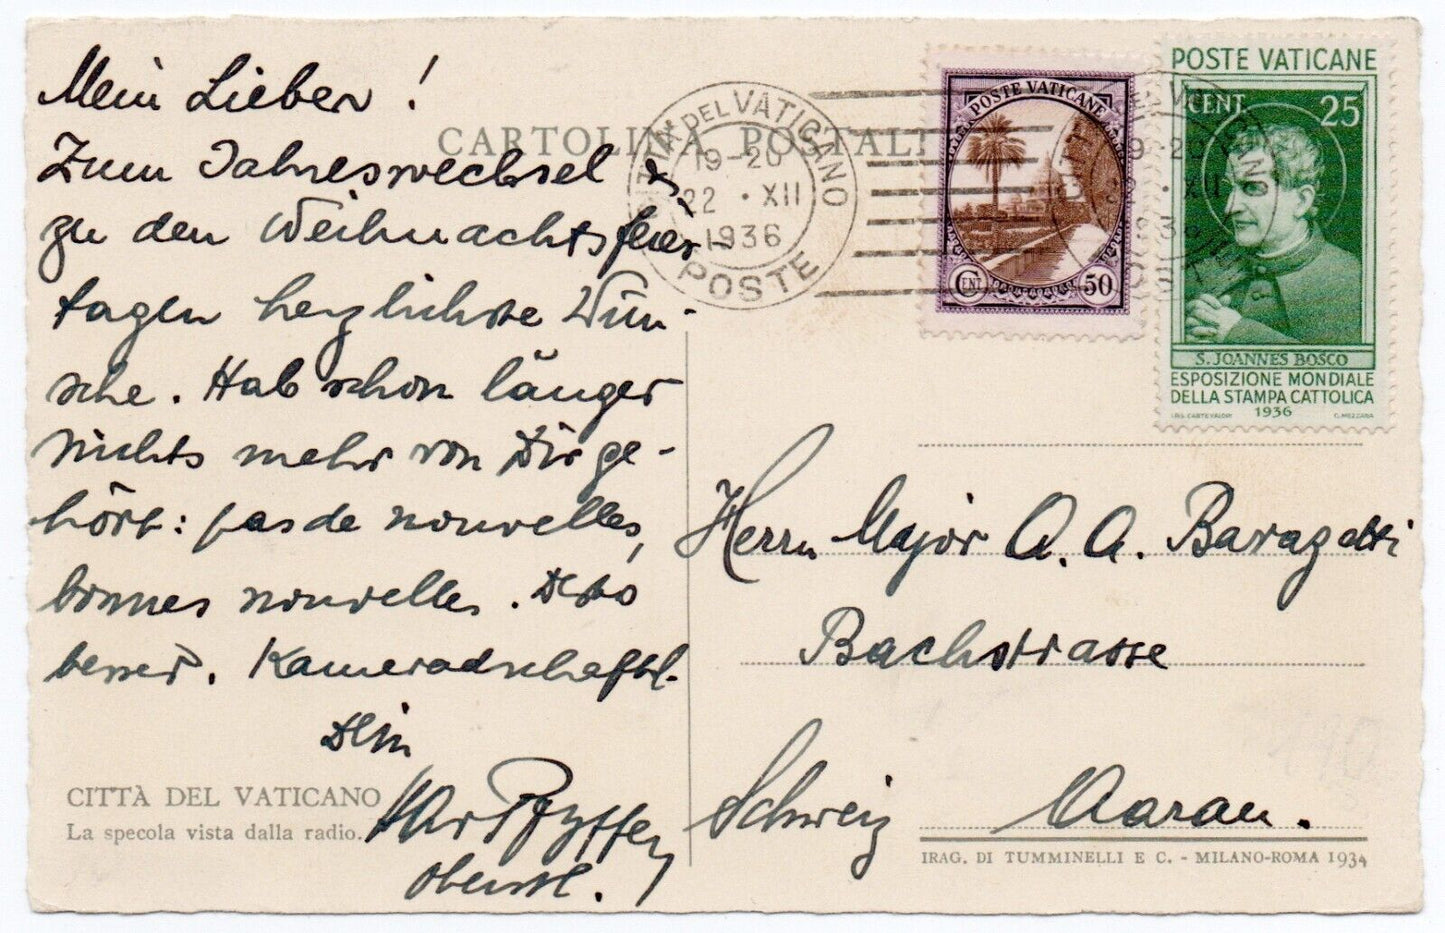 Mein Lieber!
Zum Jahreswechsel &
zu den Weihnachtsfeier-
tagen herzlichste Wün-
sche. Hab schon länger
nichts mehr von Dir ge-
hört: pas de nouvelles,
bonnes nouvelles. Desto
besser. Kameradschaftl.
Dein
Pfyffer
Oberstl.
CITTÀ DEL VATICANO
La specola vista dalla radio.
CARTOLINA POSTALE
CITTÀ DEL VATICANO
19-20
22 · XII
1936
POSTE
POSTE VATICANE
CENT 50
POSTE VATICANE
CENT. 25
S. JOANNES BOSCO
ESPOSIZIONE MONDIALE
DELLA STAMPA CATTOLICA
1936
C. MEZZANA
Herrn Major A. A. Baragetti
Bachstrasse
Schweiz Aarau.
IRAG. DI TUMMINELLI E C. - MILANO-ROMA 1934